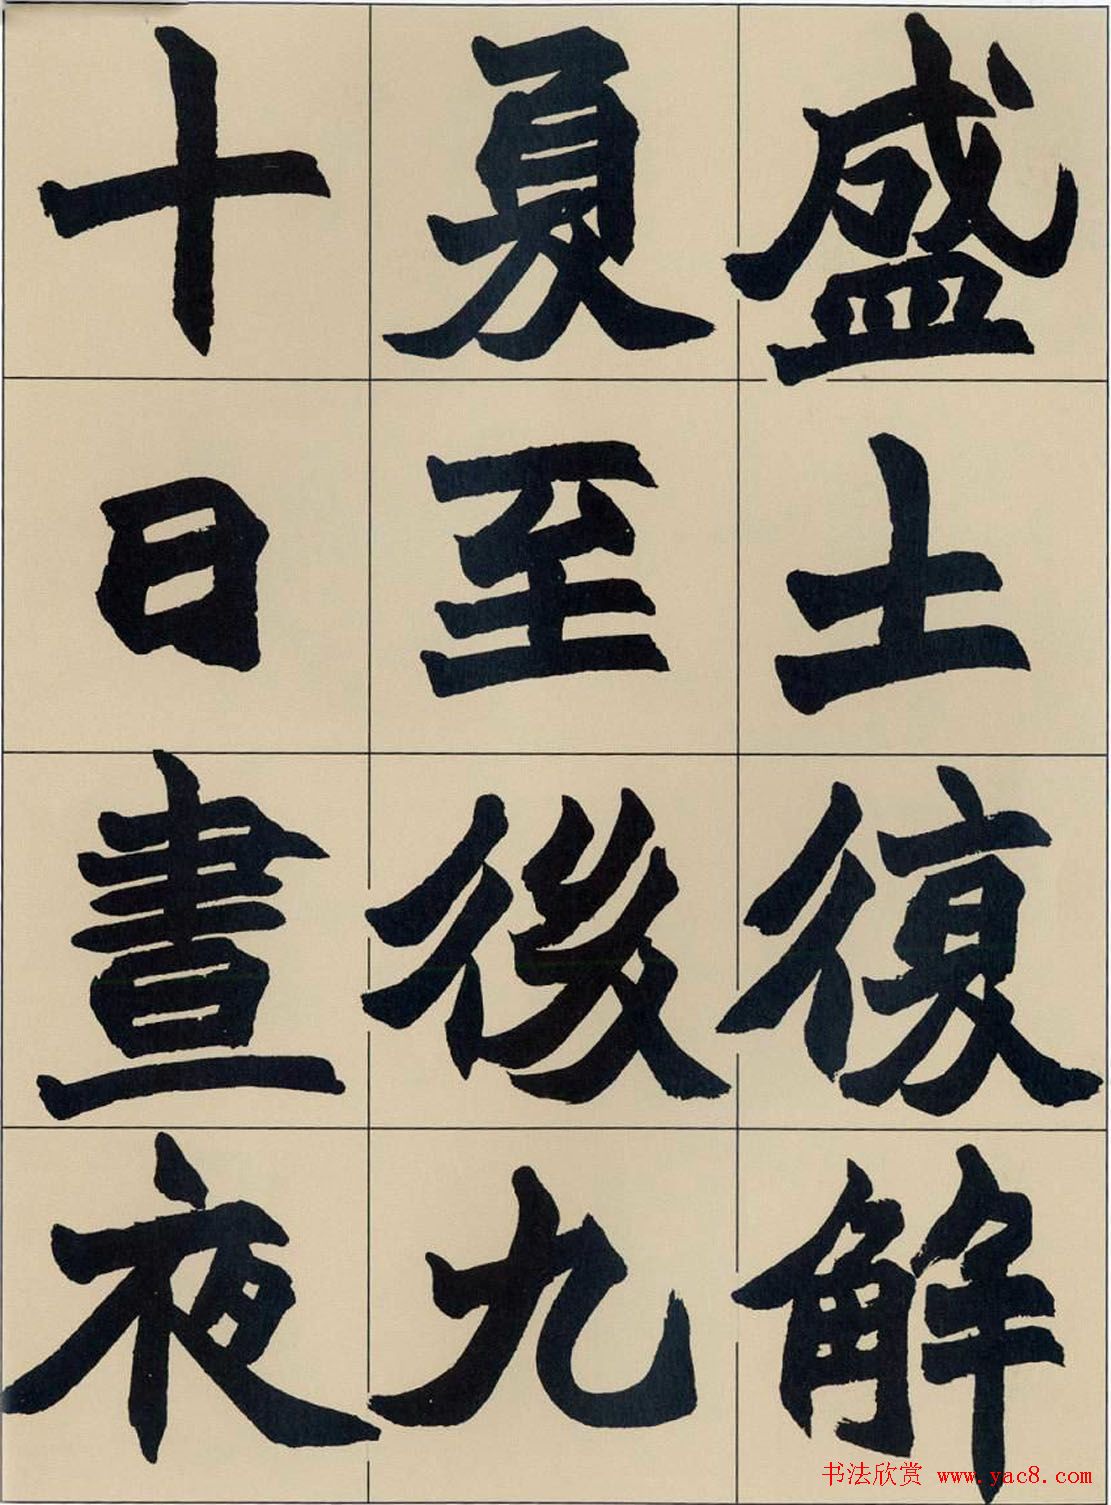 盛土復解
夏至後九
十日晝夜
书法欣赏 www.yac8.com